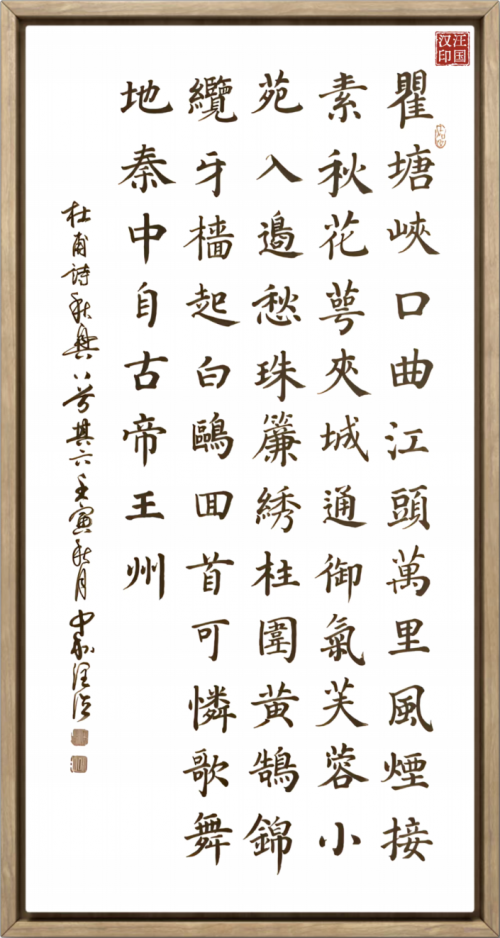 汪国汉印
瞿塘峽口曲江頭萬里風煙接
素秋花萼夾城通御氣芙蓉小
苑入邊愁珠簾綉柱圍黄鵠錦
纜牙檣起白鷗囬首可憐歌舞
地秦中自古帝王州
杜甫詩秋興八首其六壬寅秋月